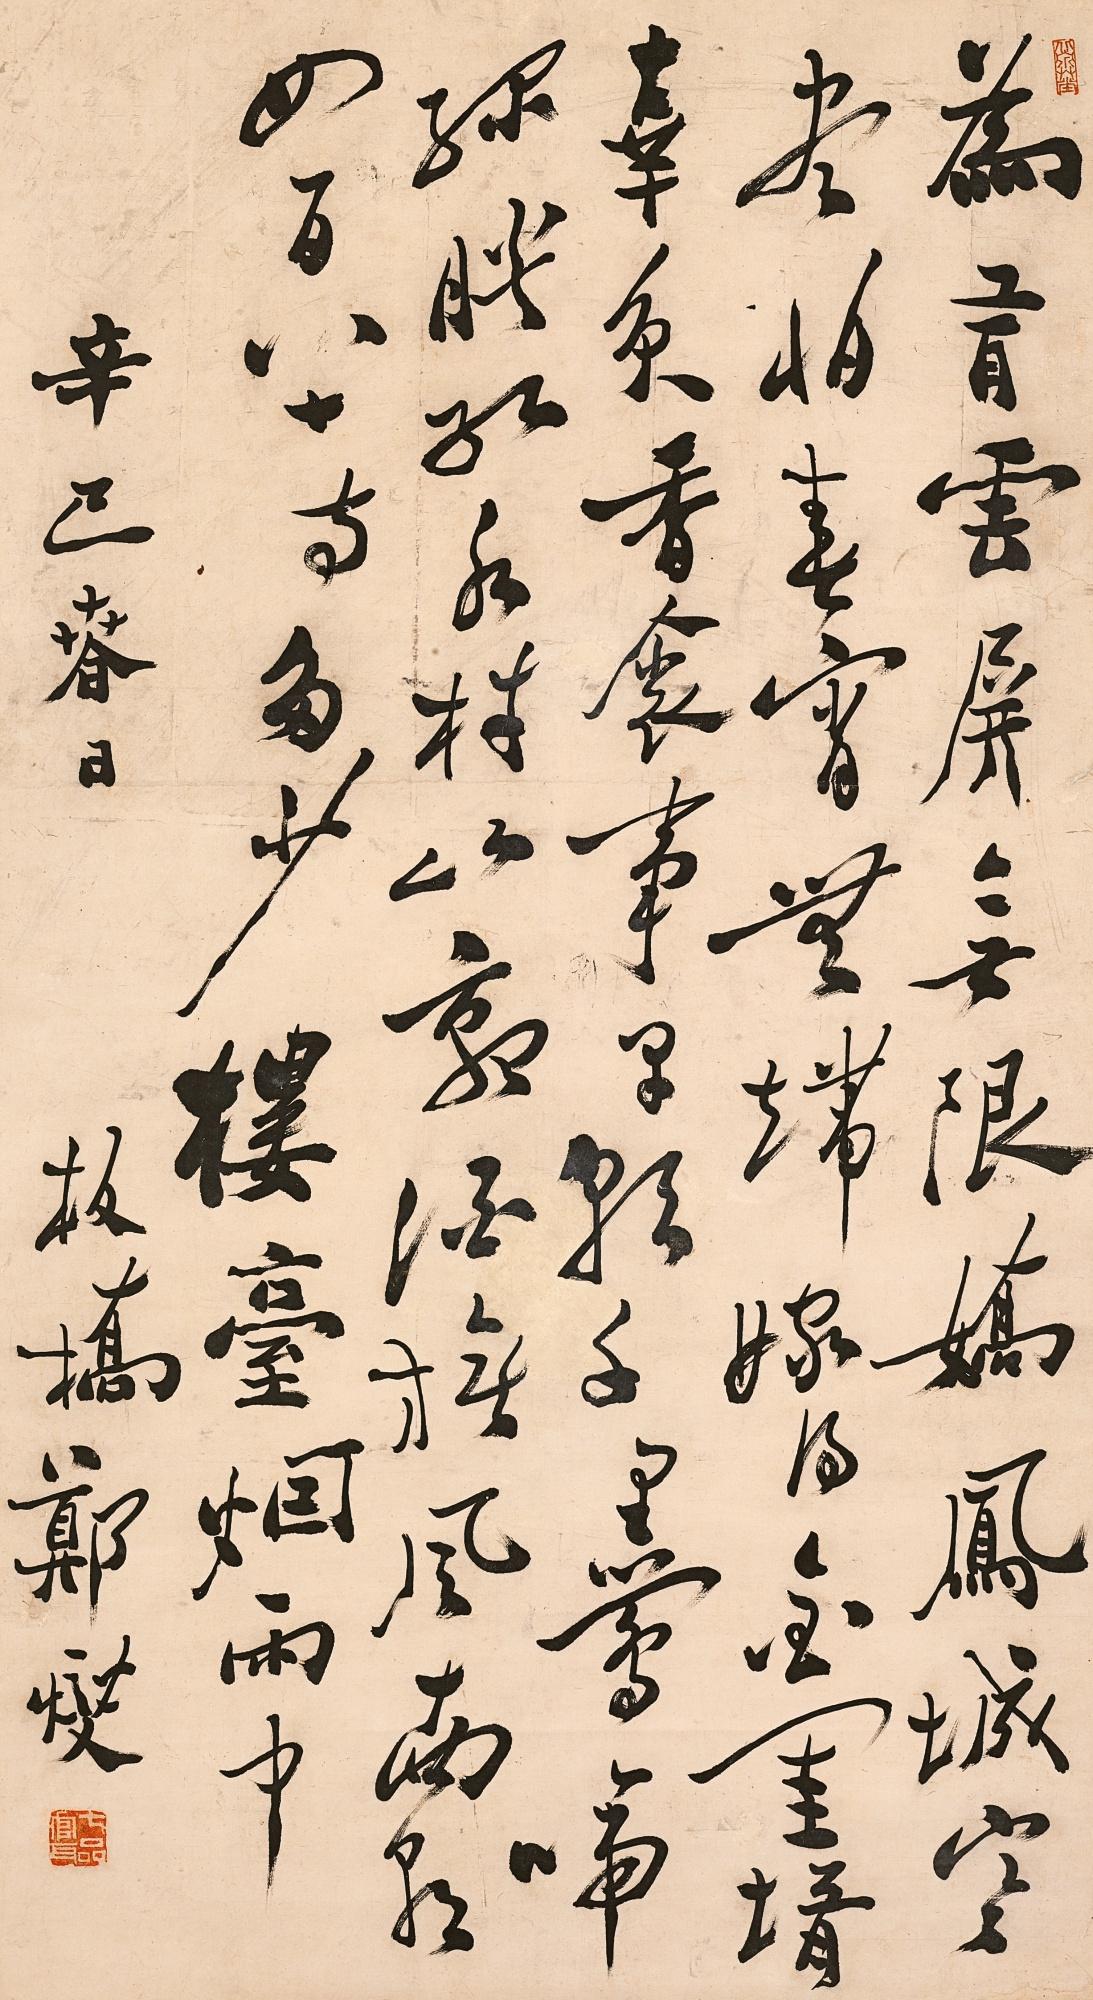 為有雲屏無限嬌鳳城寒
盡怕春宵無端嫁得金龜婿
辜負香衾事早朝千里鶯啼
綠映紅水村山郭酒旗風南朝
四百八十寺多少樓臺烟雨中
辛巳萶日
板橋鄭燮
七品官耳